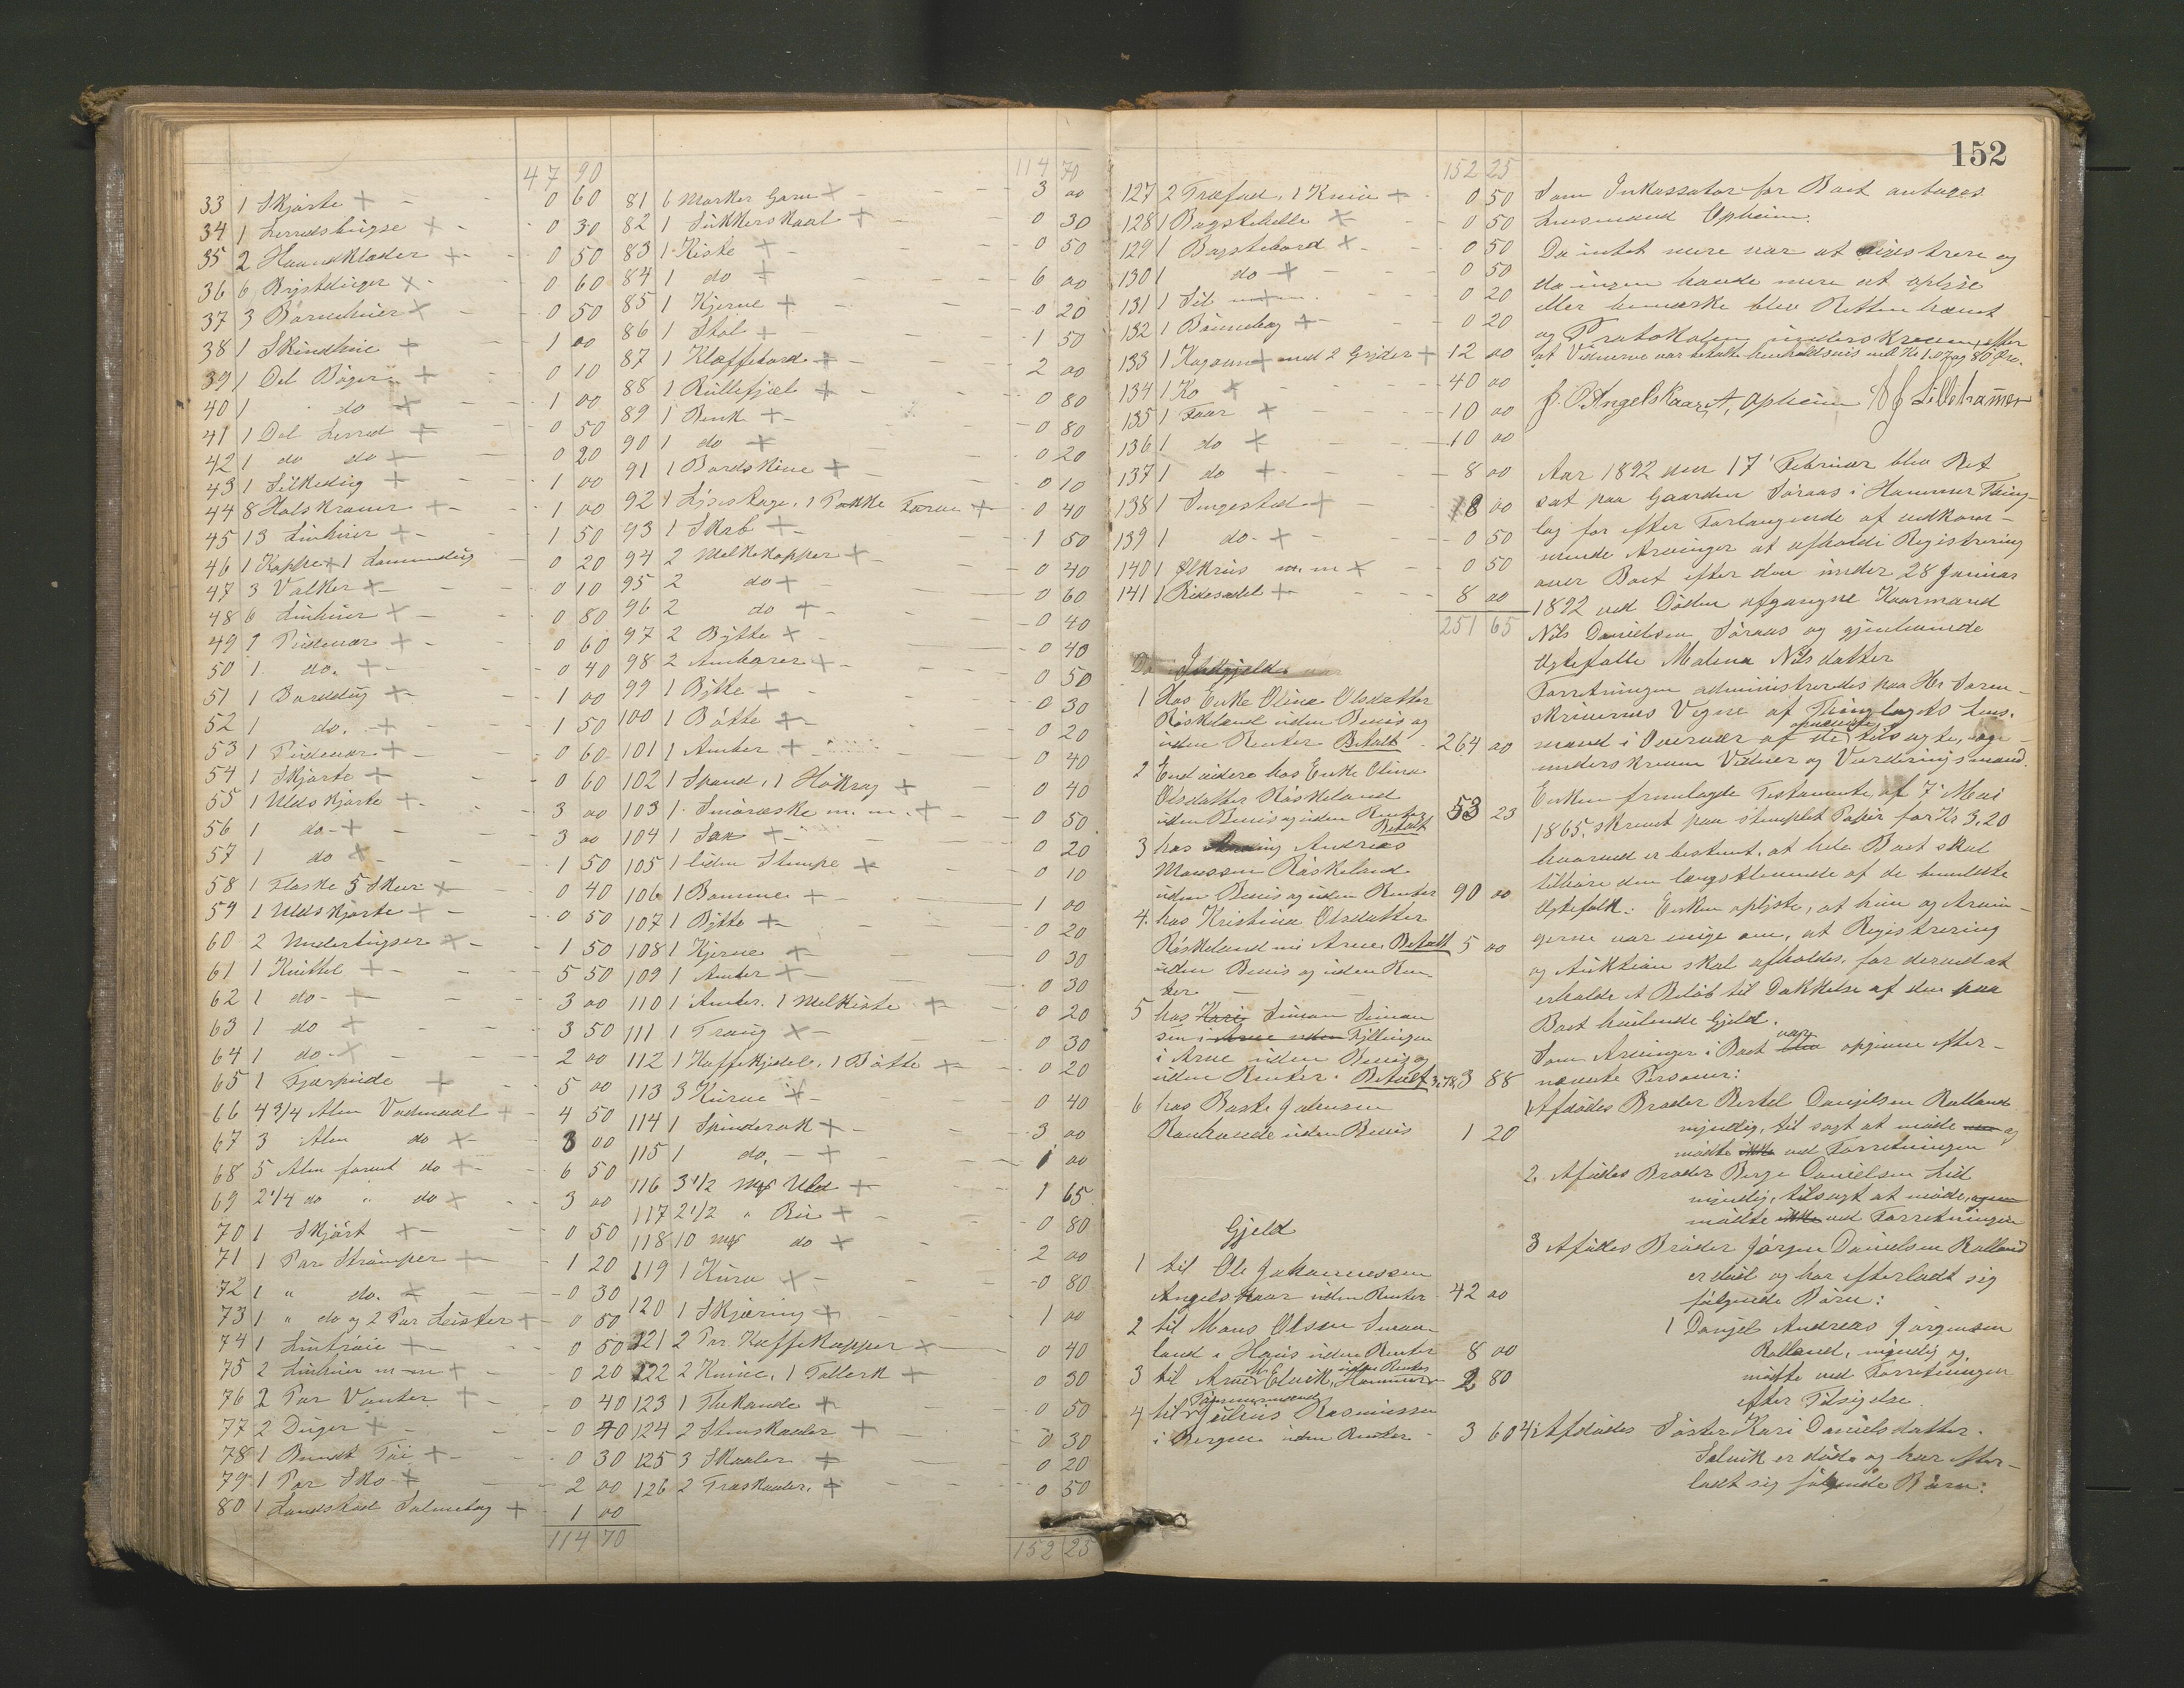 47 90
33 1 Skjorte + 0 60
34 1 Lerredsbugse + 0 30
35 2 Haandklæder + 0 50
36 6 Brystduger + 0 60
37 3 Børnehuer + 0 50
38 1 Skindhue + 1 00
39 1 Del Bøger + 0 10
40 1 do + 1 00
41 1 Del Lerred + 0 50
42 1 do do + 0 20
43 1 Silkedug + 1 00
44 8 Halskraver + 1 00
45 13 Linhuer + 1 50
46 1 Kappe + 1 Lommedug 0 20
47 3 Valker + 0 10
48 6 Linhuer + 0 80
49 1 Pudevar + 0 60
50 1 do. + 0 40
51 1 Borddug + 1 00
52 1 do. + 1 50
53 1 Pudevar + 0 60
54 1 Skjorte + 0 60
55 1 Uldskjorte + 3 00
56 1 do + 3 00
57 1 do + 1 50
58 1 Flaske 5 Skeer + 0 40
59 1 Uldskjorte + 0 50
60 2 Underbugser + 1 50
61 1 Knittel + 5 50
62 1 do + 3 00
63 1 do + 3 50
64 1 do + 2 00
65 1 Fjærpude + 5 00
66 4 3/4 Alen Vadmaal + 4 50
67 3 Alen do + 3 00
68 5 Alen farvet do + 6 50
69 2 1/4 do " do + 3 00
70 1 Skjørt + 0 50
71 1 Par Strømper + 1 20
72 1 " do. + 0 30
73 1 " do og 2 Par Leister + 0 50
74 1 Lintrøie + 0 50
75 2 Linhuer m-m + 0 20
76 2 Par Vanter + 0 40
77 2 Duger + 0 70
78 1 Bundt Tøi + 0 30
79 1 Par Sko + 2 00
80 1 Landstad Salmebog + 1 00
114 70
114 70
81 6 Marker Garn + 3 00
82 1 Sukkerskaal + 0 30
83 1 Kiste + 0 50
84 1 do + 6 00
85 1 Kjerne + 0 20
86 1 Stol + 1 50
87 1 Klaffebord + 2 00
88 1 Rullefjæl + 0 80
89 1 Benk + 0 80
90 1 do + 0 20
91 1 Bordskive + 0 10
92 1 Lysestage, 1 Pakke Farve + 0 40
93 1 Skab + 1 50
94 2 Melkekopper + 0 40
95 2 do + 0 60
96 2 do + 0 40
97 2 Bytte + 0 40
98 2 Ambarer + 0 50
99 1 Bytte + 0 30
100 1 Bøtte + 0 20
101 1 Amber + 0 40
102 1 Spand, 1 Høkrog + 0 40
103 1 Smøræske m. m. + 0 50
104 1 Sax + 0 20
105 1 liden Stampe + 0 10
106 1 Bomme + 1 00
107 1 Bytte + 0 20
108 1 Kjerne + 0 30
109 1 Amber + 0 30
110 1 Amber, 1 Melkiste + 0 20
111 1 Traug + 0 30
112 1 Kaffekjedel, 1 Bøtte + 0 20
113 3 Kurve + 0 40
114 1 Spinderok + 3 00
115 1 do. + 1 00
116 3 1/2 Mrk Uld + 1 65
117 2 1/2 " Ru + 0 80
118 10 mrk do + 2 00
119 1 Kurv + 0 80
120 1 Skjæring + 1 00
121 2 Par Kaffekopper + 0 40
122 2 Knive, 1 Tallerk + 0 30
123 1 Thekande + 0 50
124 2 Stenskaaler + 0 30
125 3 Skaaler + 0 20
126 2 Træskaaler, + 0 50
152 25
152
152 25
127 2 Træfad, 1 Kniv + 0 50
128 1 Bagstehelle + 0 50
129 1 Bagstebord + 0 50
130 1 do + 0 50
131 1 Sil m.m. 0 20
132 1 Bønnebog + 0 20
133 1 Kogeovn + med 2 Gryder + 12 00
134 1 Ko + 40 00
135 1 Faar + 10 00
136 1 do + 10 00
137 1 do + 8 00
138 1 Sengested + 8 00
139 1 do + 0 50
140 1 Ølkrus m. m + 0 50
141 1 Ridesadel + 8 00
251 65
Indgjeld
1 Hos Enke Olina Olsdatter
Røskeland uden Bevis og
uden Renter Betalt 264 00
2 End videre hos Enke Olina
Olsdatter Røskeland
uden Bevis og uden Renter 53 23
Betalt
3 hos Andreas
Monssen Røskeland
uden Bevis og uden Renter 90 00
4. hos Kristina Olsdatter
Røskeland nu Arne Betalt 5 00
uden Bevis og uden Ren-
ter
5 hos Kari Simon Simon
sen i Arne uden Fyllingen
i Arne uden Bevis og
uden Renter. Betalt 3,78, 3 88
6 hos Baste Johnsen
uden Bevis 1 20
Gjeld
1 til Ole Johannessen
Angelskaar uden Renter 42 00
2 til Mons Olsen Smaa-
land i Haus uden Renter 8 00
3 til Arne Elvik, Hammer uden Renter 2 80
Tømmermand
4 til Julius Rasmussen
i Bergen uden Renter 3 60
Som Inkassator for Boet antages
Lensmand Opheim.
Da intet mere var at registrere og
da ingen havde mere at oplyse
eller bemærke blev Retten hævet
og Protokolen underskreven efter
at Vidnerne var betalte henholdsvis med Kr 1.07 og 80 Øre.
J. O Angelskaar, A, Opheim Lillehammer
Aar 1892 den 17 Februar blev Ret
sat paa Gaarden Søraas i Hammer Thing-
lag for efter Forlangende af vedkom-
mende Arvinger at afholde Registrering
over Boet efter den under 28 Januar
1892 ved Døden afgangne Kaarmand
Nils Danielsen Søraas og gjenlevende
Egtefælle Malena Nilsdatter
Forretningen administreredes paa Hr Soren-
skriverens Vegne af Thinglagets Lens-
mand i Overvær af de opnævnte, tilsagte, og
underskrevne Vidner og Vurderingsmænd.
Enken fremlagde Testamente af 7 Mai
1865, skrevet paa stemplet Papir for Kr 3,20
hvorved er bestemt, at hele Boet skal
tilhøre den længstlevende af de
Egtefolk. Enken oplyste, at hun og Arvin-
gerne var enige om, at Registrering
og Auktion skal afholdes, for derved at
erholde et Beløb til Dækkelse af den paa
Boet hvilende Gjeld.
Som Arvinger i Boet blev var opgivne efter-
nævnte Personer:
1 Afdødes Broder Bertel Danjelsen Rolland
myndig, til sagt at møde og
mødte ikke ved Forretningen
2. Afdødes Broder Berge Danielsen Lid
myndig, tilsagt at møde,
mødte ikke ved Forretningen
3 Afdødes Broder Jørgen Danielsen Rolland
er død og har efterladt sig
følgende Børn:
1 Danjel Andreas Jørgensen
Rolland, myndig og
mødte ved Forretningen
efter Tilsigelse
4 Afdødes Søster Kari Danielsdatter
Salvik er død og har efter-
ladt sig følgende Børn: